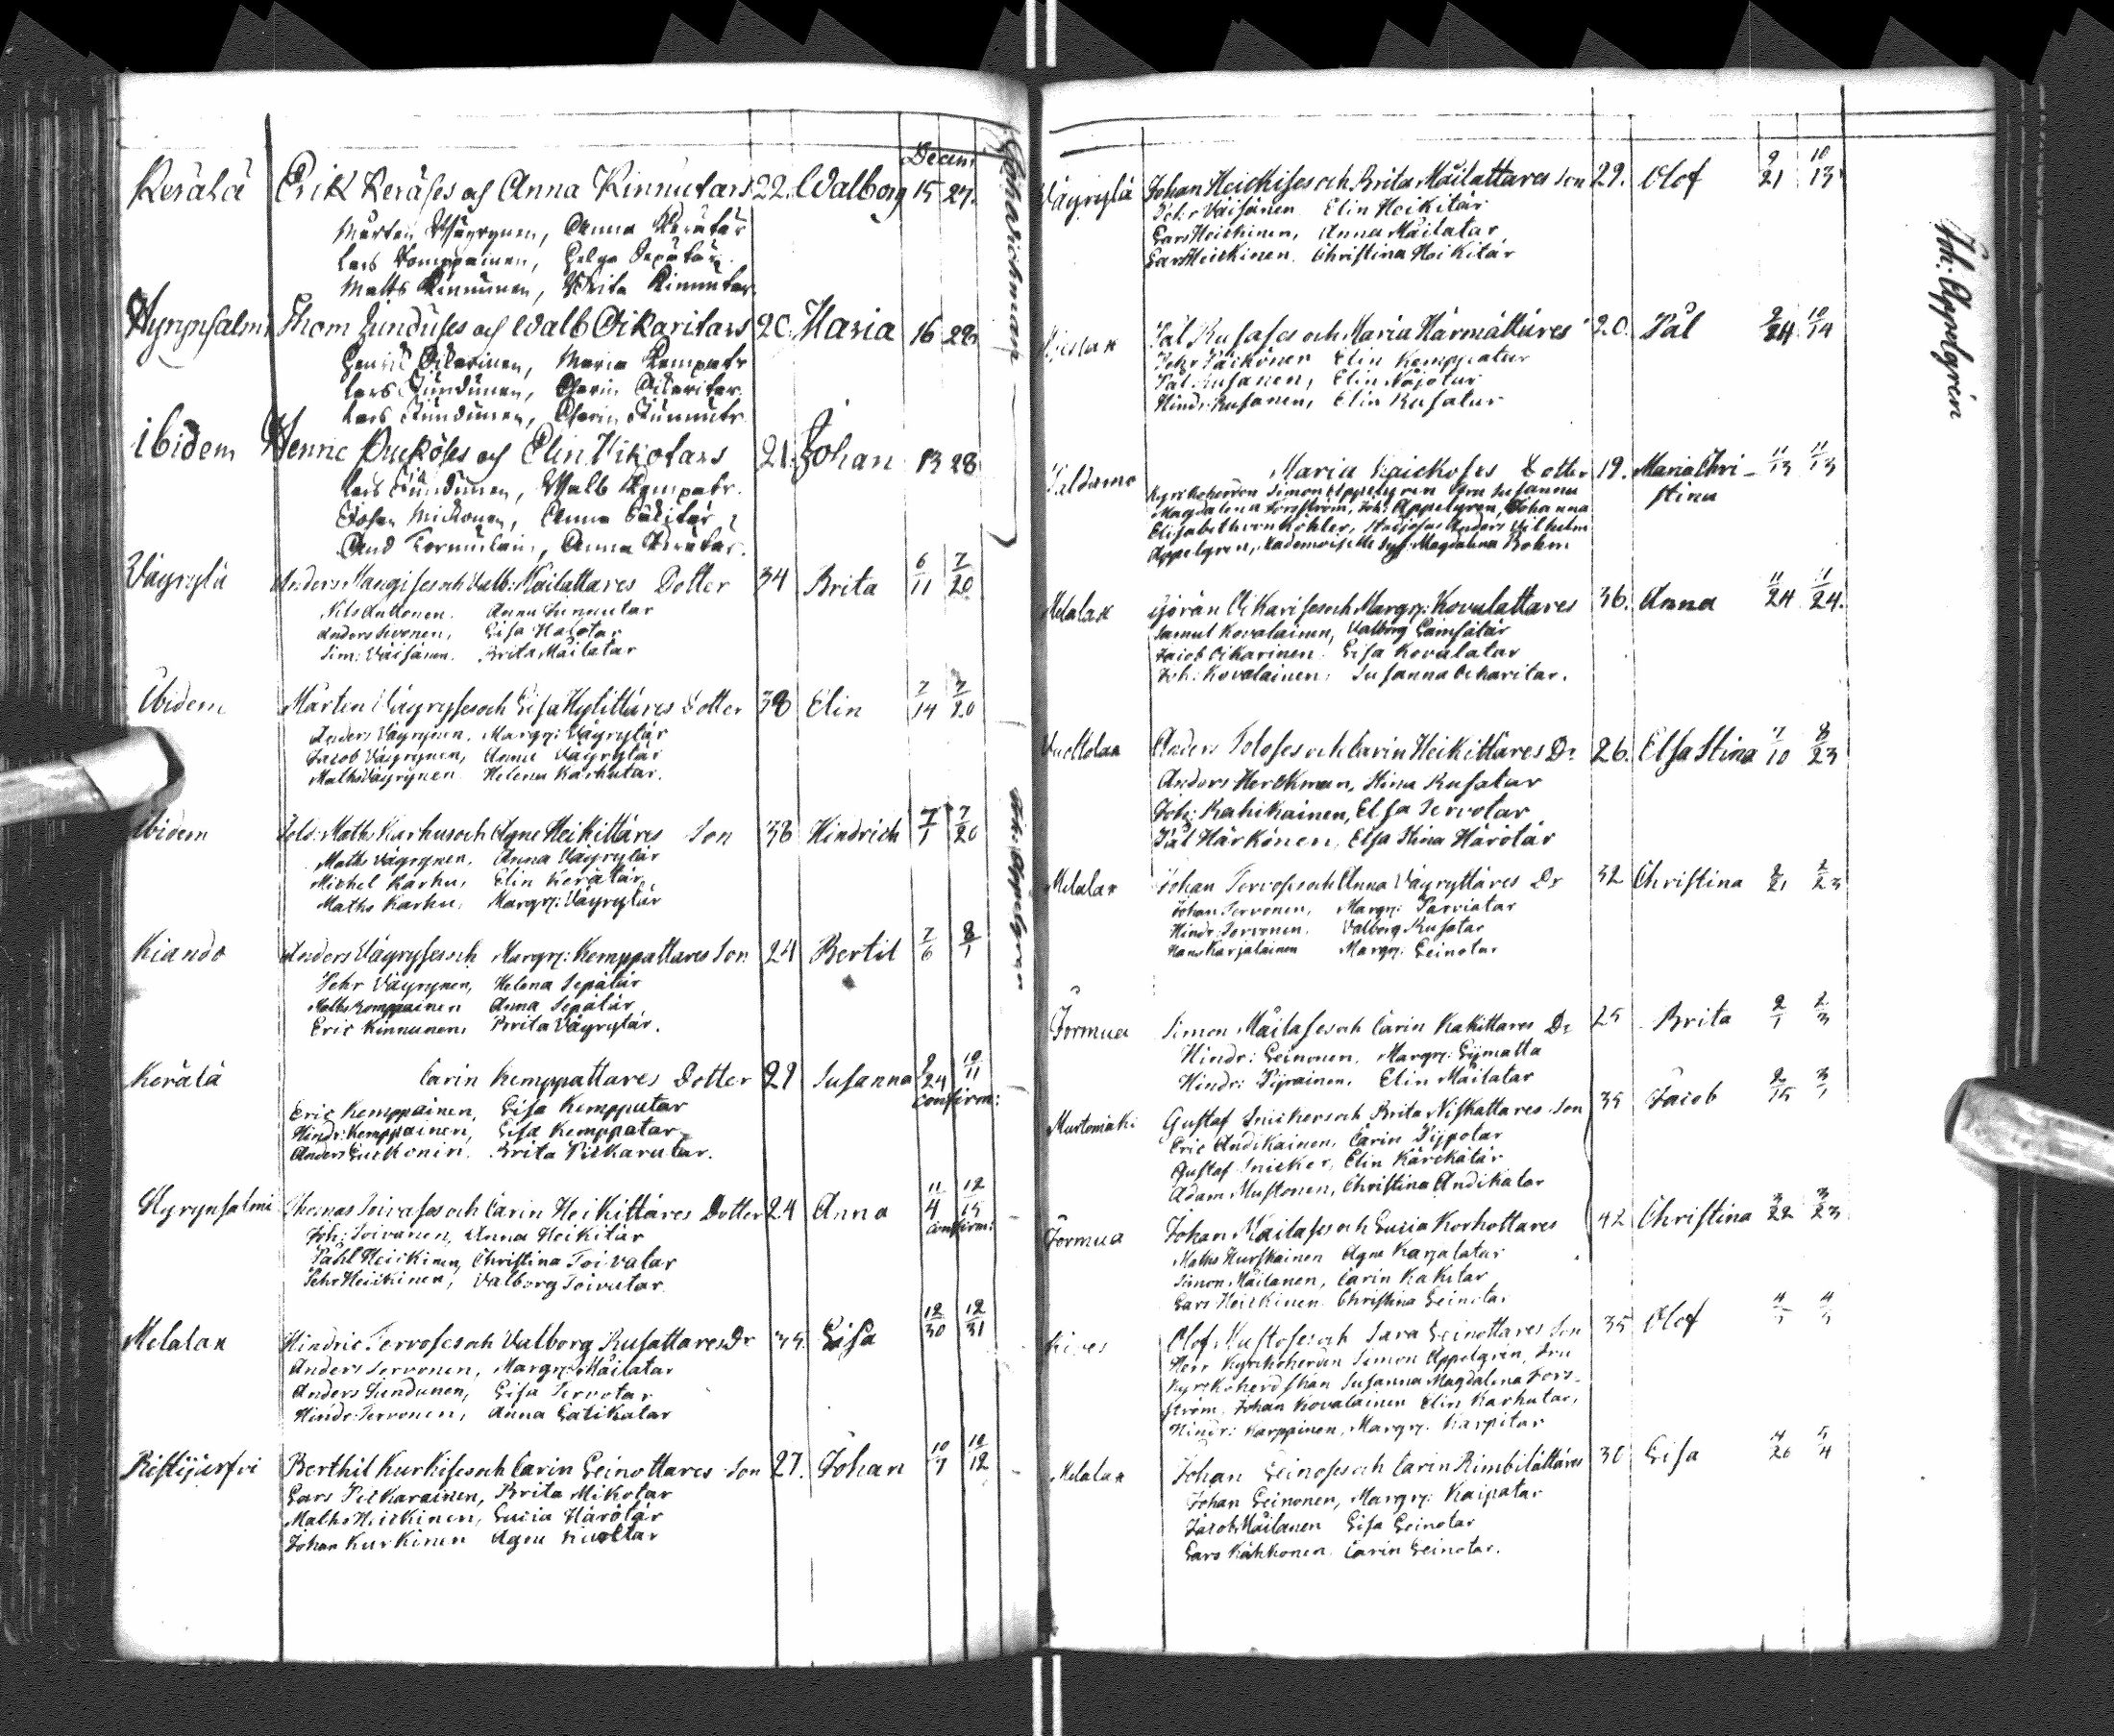 Decem.
Kerälä Erik Keräses och Anna Kinnutars 22. Walborg 15 27.
Mårten Wäyrynen, Anna Kerätär
Lars Komppainen, Helga Sepätär
Matts Kinnunen, Brita Kinnutar
Hyrynsalmi Thom Junduses och Walb Oikaritars 20. Maria 16 28
Henric Oikarinen, Maria Kempatr
Lars Jundunen, Carin Oikaritar
Lars Jundunen, Carin
ibidem Henric och Elin Mikotars 21. Johan 13 28
Lars Jundunen, Walb Kempatr.
Johan Mickonen, Anna
And Anna Kerätar.
Väyrylä Anders och Valb: Mäilattares Dotter 34 Brita 6/11 7/20
Nils Anttonen. Anna
Anders Sivonen, Lisa Halotar
Sim: Väisänen. Brita Mäilatar
Ibidem Mårten Väyryses och Lisa Hylittäres Dotter 38 Elin 7/14 7/20
Anders Väyrynen, Margr: Väyrytär
Jacob Väyrynen, Anna Väyrytär
Maths Väyrynen Helena Karhutar.
Ibidem Sold: Maths Karhus och Agne Heikittäres Son 38 Hindrich 7/1 7/20
Maths Väyrynen, Anna Väyrytär
Michel Karhu, Elin Kerätär
Maths Karhu, Margr: Väyrytär
Kiando Anders Väyryses och Margr: Kemppattares Son 24 Bertil 7/6 8/1
Pehr Väyrynen, Helena Sepätär
Maths Komppainen Anna Sepätär
Eric Kinnunen, Brita Väyrytär.
Kerälä Carin Kemppattares Dotter 29 Susanna 9/24 10/11
confirm:
Eric Kemppainen, Lisa Kemppatar
Hindr: Kemppainen, Lisa Kemppatar
Anders Luckonin. Brita Pitkaratar.
Hyrynsalmi Thomas Toivases och Carin Heikittäres Dotter 24 Anna 11/4 12/15
confirm:
Joh: Toivanen, Anna Heikitär
Påhl Heickinen, Christina Toivatar
Pehr Heickinen, Valborg Toivatar
Melalax Hindric Tervoses och Valborg Rusattares Dr 35. Lisa 12/30 12/31
Anders Tervonen, Margr: Mäilatar
Anders Jundunen, Lisa Tervotar
Hindr: Tervonen, Anna Latikatar
Ristijerfvi Berthil Kurkises och Carin Leinottares Son 27. Johan 10/7 10/12
Lars Pitkarainen, Brita Mikotar
Maths Heickinen, Lucia Härötär
Johan Kurkinen Agne
Joh: Appelgren
Väyrylä Johan Heickises och Brita Mäilattares Son 29. Olof 9/21 10/13
Pehr Väisänen Elin Heikitär
Lars Heickinen, Anna Mäilatar
Lars Heickinen. Christina Heikitär
Pål Rusases och Maria Härmättäres 20. Pål 9/24 10/14
Pehr Päikönen Elin Kemppatar
Pål Rusanen, Elin
Hindr: Rusanen, Elin Rusatar
Paldamo Maria Dotter 19. Maria Chri- 11/13 11/13
stina
Kyrckoherden Simon Appelgren Fru Susanna
Magdalena Forsström, Joh: Appelgren, Johanna
Elisabeth von Köhler, Studiosus Anders Vilhelm
Appelgren, Mademoiselle Magdalena Bohm
Melalax Göran Oikarises och Margr: Kovalattares 36. Anna 11/24 11/24.
Samul Kovalainen, Valborg
Jacob Oikarinen. Lisa Kovalatar
Joh: Kovalainen, Susanna Oikaritar.
Vuottolax Anders Toloses och Carin Heikittäres Dr 26. Elsa Stina 7/10 8/23
Anders Herckman, Stina Rusatar
Joh: Kahikainen, Elsa Tervotar
Pål Härkönen, Elsa Stina Härötär
Melalax Johan Tervoses och Anna Väyryttäres Dr 32 Christina 2/21 2/23
Johan Tervonen, Margr: Parviatar
Hindr: Tervonen, Valborg Rusatar
Hans Karjalainen Margr: Leinotar
Jormua Simon Mäilases och Carin Kakittares Dr 25 Brita 2/1 2/3
Hindr: Leinonen, Margr: Lijmatta
Hindr: Pijrainen, Elin Mäilatar
Mustomäki Gustaf Snickers och Brita Niskattares Son 35 Jacob 2/15 3/1
Eric Andikainen, Carin Pijpotar
Gustaf Snicker, Elin Kärckätär
Adam Mustonen, Christina Andikatar
Jormua Johan Mäilases och Lucia Korhottares 42 Christina 3/22 3/23
Maths Hurskainen Agne Karjalatar
Simon Mäilanen, Carin Kakitar
Lars Heickinen Christina Leinotar
Olof Mustoses och Sara Leinottares Son 35 Olof
Herr Kyrckoherden Simon Appelgren, Fru
Kyrckoherdskan Susanna Magdalena Fors-
ström, Johan Kovalainen Elin Karhutar,
Hindr: Karppinen, Margr: Karpitar
Melalax Johan Leinoses och Carin Rimbilättäres 30 Lisa 4/26 5/4
Johan Leinonen, Margr: Kaipatar
Jacob Mäilanen Lisa Leinotar
Lars Kähkonen. Carin Leinotar.
Joh: Appelgren